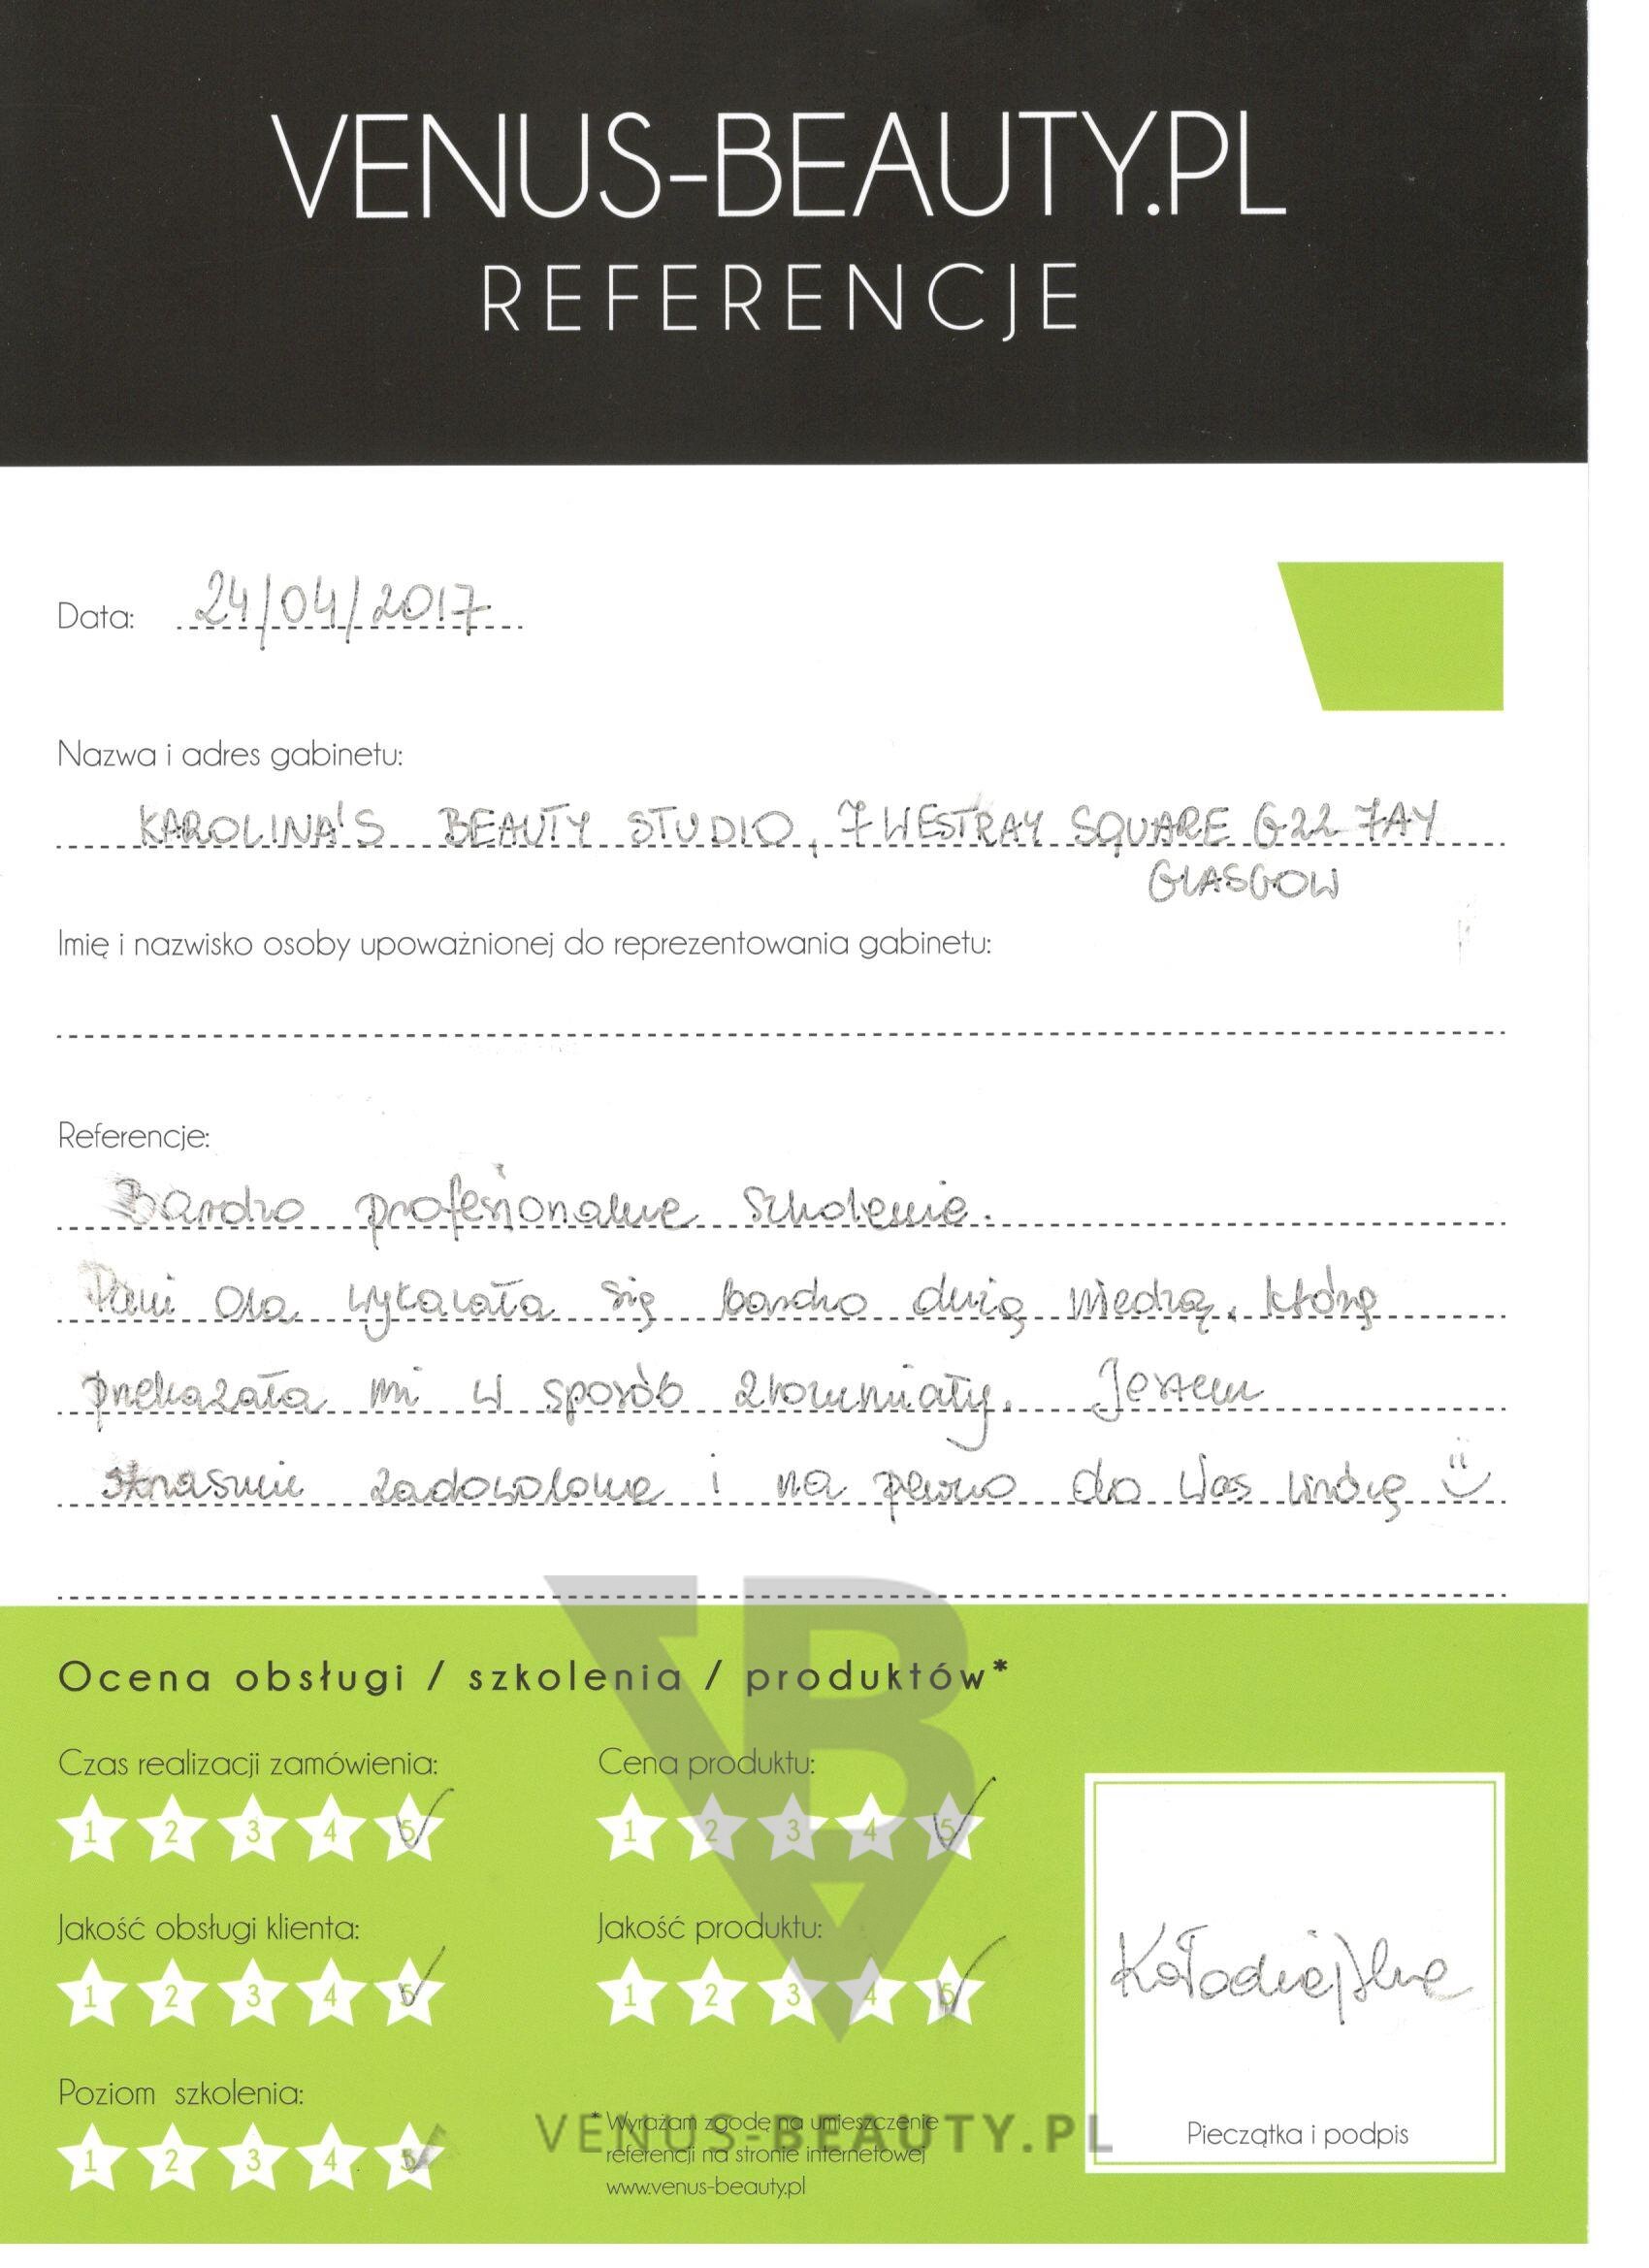 VENUS-BEAUTY.PL
REFERENCJE
Data: 24/04/2017
Nazwa i adres gabinetu:
KAROLINA'S BEAUTY STUDIO, 7 WESTRAY SQUARE G22 7AY
GLASGOW
Imię i nazwisko osoby upoważnionej do reprezentowania gabinetu:
Referencje:
Bardzo profesjonalne szkolenie.
Pani Ola wykazała się bardzo dużą wiedzą, którą
przekazała mi w sposób zrozumiały. Jestem
strasznie zadowolona i na pewno do Was wrócę
Ocena obsługi / szkolenia / produktów*
Czas realizacji zamówienia:
1 2 3 4 5
Cena produktu:
1 2 3 4 5
Jakość obsługi klienta:
1 2 3 4 5
Jakość produktu:
1 2 3 4 5
Poziom szkolenia:
1 2 3 4 5
* Wyrażam zgodę na umieszczenie
referencji na stronie internetowej
www.venus-beauty.pl
VENUS-BEAUTY.PL
Pieczątka i podpis